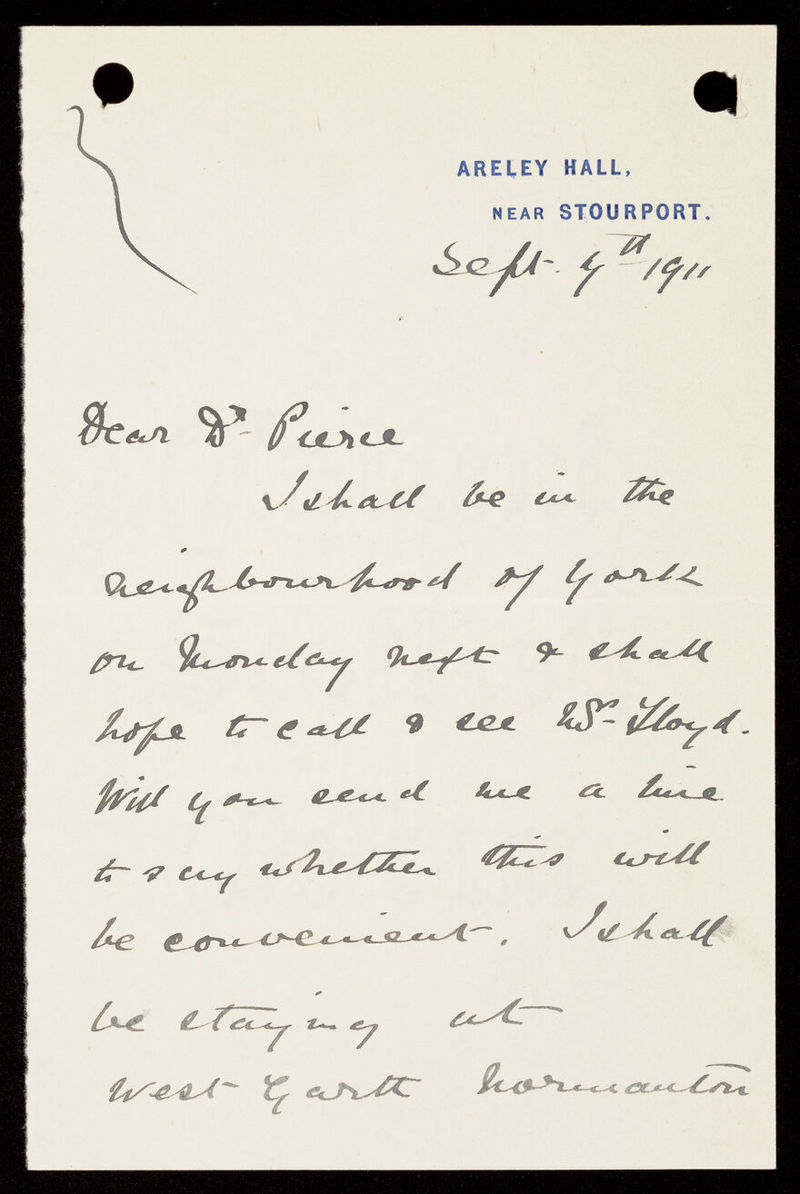 ARELEY HALL,
NEAR STOURPORT.
Sept. 7th 1911
Dear Dr Pierce
I shall be in the
neighbourhood of York
on Monday next & shall
hope to call & see Mr Lloyd.
Will you send me a line
to say whether this will
be convenient. I shall
be staying at
West Garth Normanton